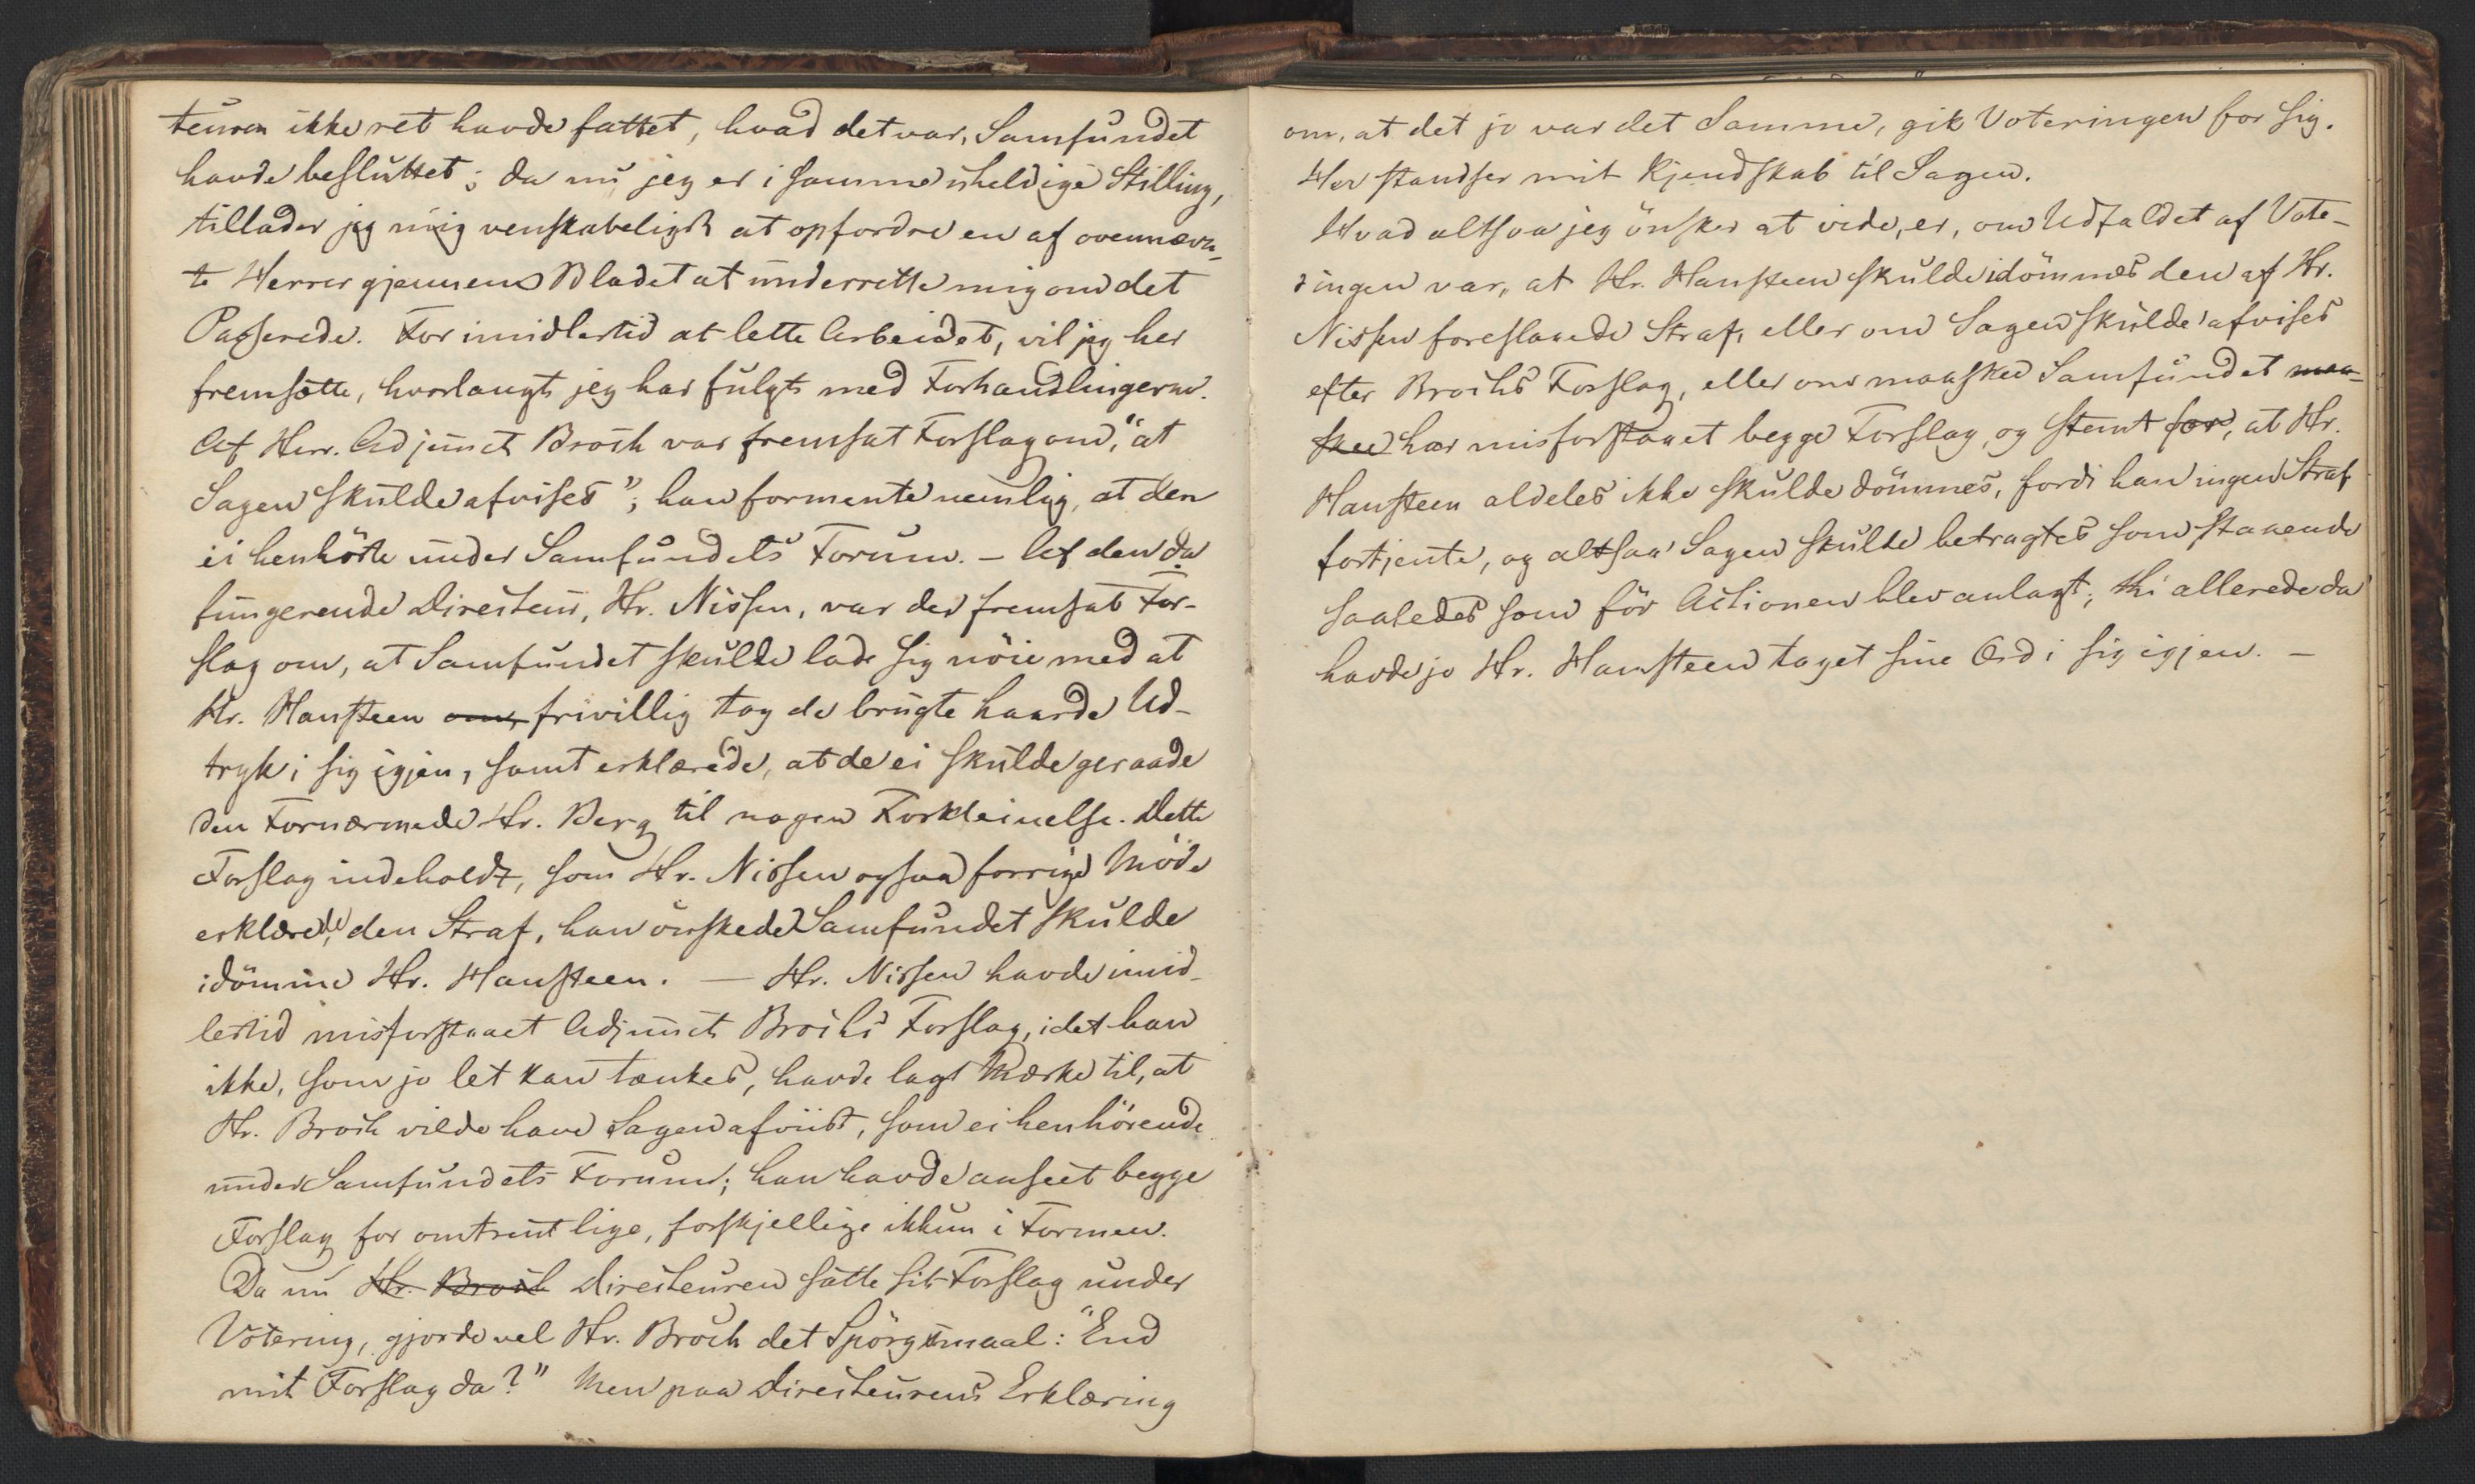 teuren ikke ret havde fattet, hvad det var, Samfundet
havde besluttet; da nu jeg er i samme uheldige Stilling,
tillader jeg mig venskabeligst at opfordre en af ovennævn-
te Herrer gjennem Bladet at underrette mig om det
Passerede. For imidlertid at lette Arbeidet, vil jeg her
fremsætte, hvorlangt jeg har fulgt med Forhandlingerne.
Af Herr. Adjunct Broch var fremsat Forslag om, "at
Sagen skulde afvises"; han formente nemlig, at den
ei henhörte under Samfundets Forum. – Af den da
fungerende Directeur, Hr. Nissen, var der fremsat For-
slag om, at Samfundet skulde lade sig nöie med at
Hr. Hansteen om, frivillig tog de brugte haarde Ud-
tryk i sig igjen, samt erklærede, at de ei skulde geraade
den Fornærmede Hr. Berg til nogen Forkleinelse. Dette
Forslag indeholdt, som Hr. Nissen ogsaa forrige Möde
erklærede, den Straf, han önskede Samfundet skulde
idömme Hr. Hansteen. — Hr. Nissen havde imid-
lertid misforstaaet Adjunct Brochs Forslag, idet han
ikke, som jo let kan tænkes, havde lagt Mærke til, at
Hr. Broch vilde have Sagen afviist, som ei henhörende
under Samfundets Forum; han havde anseet begge
Forslag for omtrent lige, forskjellige ikkun i Formen.
Da nu Hr. Broch Directeuren satte sit Forslag under
Votering, gjorde vel Hr. Broch det Spörgsmaal: "End
mit Forslag da?" Men paa Directeurens Erklæring
om, at det jo var det Samme, gik Voteringen for sig.
Her standser mit Kjendskab til Sagen.
Hvad altsaa jeg önsker at vide, er, om Udfaldet af Vote-
ringen var, at Hr. Hansteen skulde idömmes den af Hr.
Nissen foreslaaede Straf, eller om Sagen skulde afvises
efter Brochs Forslag, eller om maaskee Samfundet maa-
skee har misforstaaet begge Forslag, og stemt for, at Hr.
Hansteen aldeles ikke skulde dömmes, fordi han ingen Straf
fortjente, og altsaa Sagen skulde betragtes som staaende
saaledes som för Actionen blev anlagt; thi allerede da
havde jo Hr. Hansteen taget sine Ord i sig igjen. –